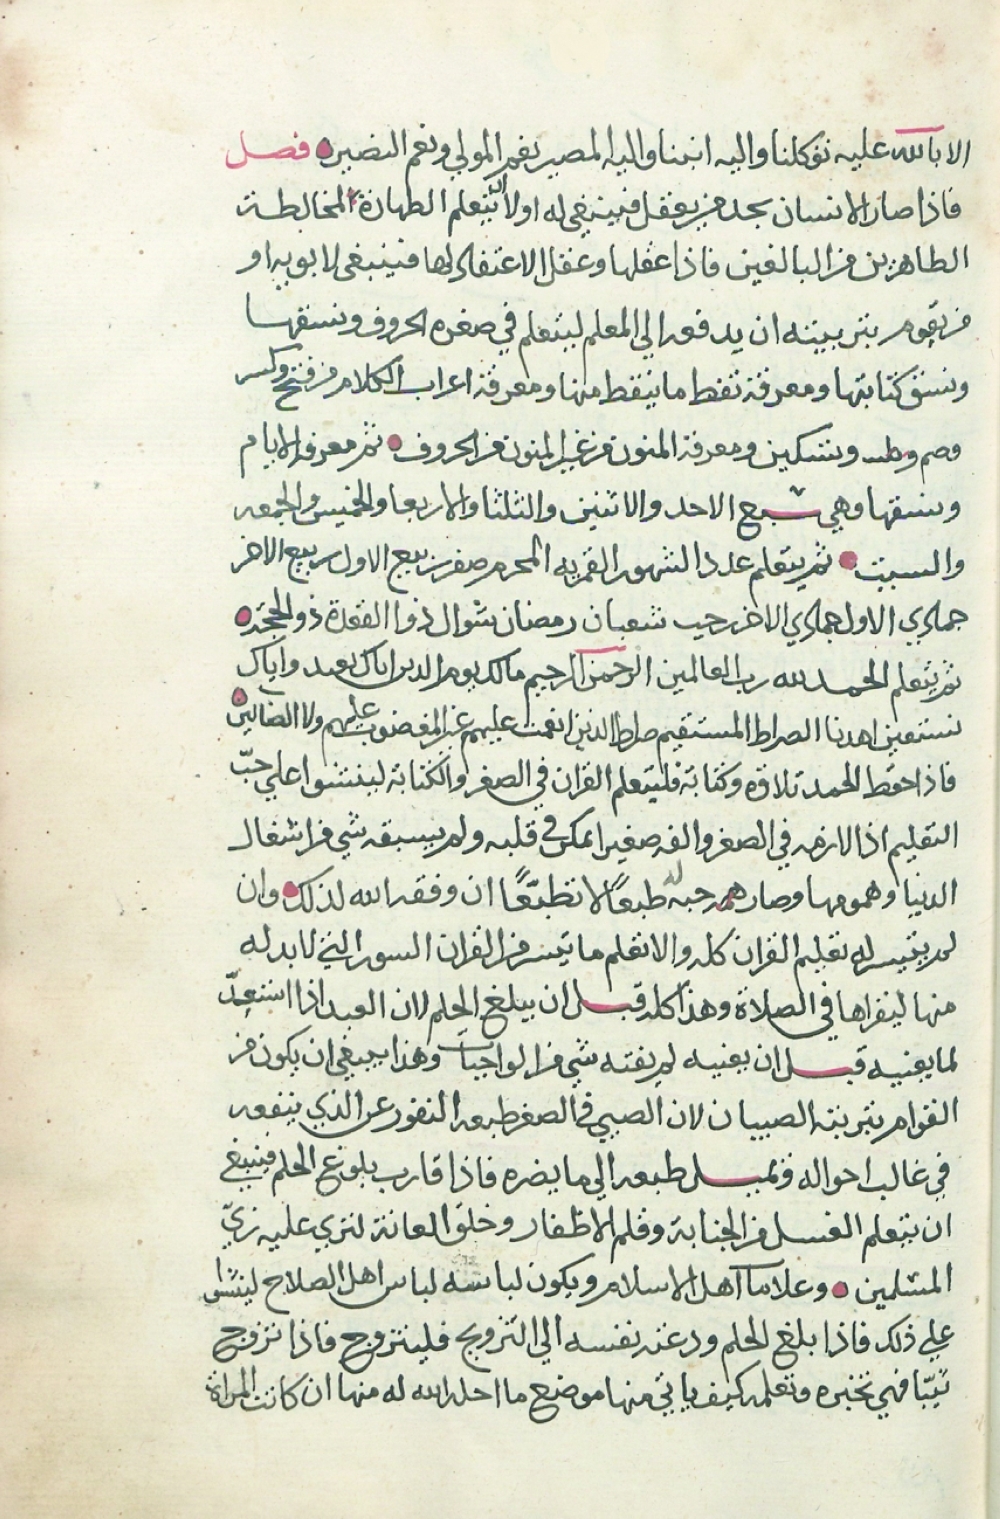 الا بالله عليه توكلنا واليه انبنا واليه المصير نعم المولي ونعم النصير فصل
فاذا صار الانسان بحد من يعقل فينبغي له اولا ان يتعلم الطهارة المخالطة
الطاهرين من البالغين فاذا عقلها وعقل الاعتقاد لها فينبغي لابويه او
من يقوم بتربيته ان يدفعه الي المعلم ليتعلم في صغره الحروف ونسقها
ونسق كتابتها ومعرفة نقط ما ينقط منها ومعرفة اعراب الكلام من فتح وكسر
وضم وتسكين ومعرفة المنون من غير المنون من الحروف ثم معرفة الايام
ونسقها وهي سبع الاحد والاثنين والثلثا والاربعا والخميس والجمعه
والسبت ثم يتعلم عدد الشهور القمريه المحرم صفر ربيع الاول ربيع الاخر
جمادي الاول جمادي الاخر رجب شعبان رمضان شوال ذوا القعدة ذو الحجة
ثم يتعلم الحمد لله رب العالمين الرحمن الرحيم مالك يوم الدين اياك نعبد واياك
نستعين اهدنا الصراط المستقيم صراط الذين انعمت عليهم غير المغضوب عليهم ولا الضالين
فاذا حفظ الحمد تلاوة وكتابة فليتعلم القران في الصغر والكتابة لينشوا علي حبّ
التعليم اذا لازمه في الصغر والفه صغيرا تمكن في قلبه ولم يسبقه شي من اشغال
الدنيا وهمومها وصار حبه له طبعًا لا تطبّعًا ان وفقه الله لذلك وان
لم يتيسر له تعليم القران كله والا تعلم ما تيسر من القران السور التي لا بد له
منها ليقراها في الصلاة وهذا كله قبل ان يبلغ الحلم لان العبد اذا استعدّ
لما يعنيه قبل ان يعنيه لم يفته شي من الواجبات وهذا ينبغي ان يكون من
القوام بتربية الصبيان لان الصبي في الصغر طبعه النفور عن الذي ينفعه
في غالب احواله ويميل طبعه الي ما يضره فاذا قارب بلوغ الحلم فينبغي
ان يتعلم الغسل من الجنابة وقلم الاظفار وحلق العانة لتري عليه زيّ
المسلمين وعلامات اهل الاسلام ويكون لباسه لباس اهل الصلاح لينشا
علي ذلك فاذا بلغ الحلم ودعته نفسه الي التزويج فليتزوج فاذا تزوج
ثيّبا فهي تخبره وتعلمه كيف ياتي منها موضع ما احله الله له منها ان كانت المراة